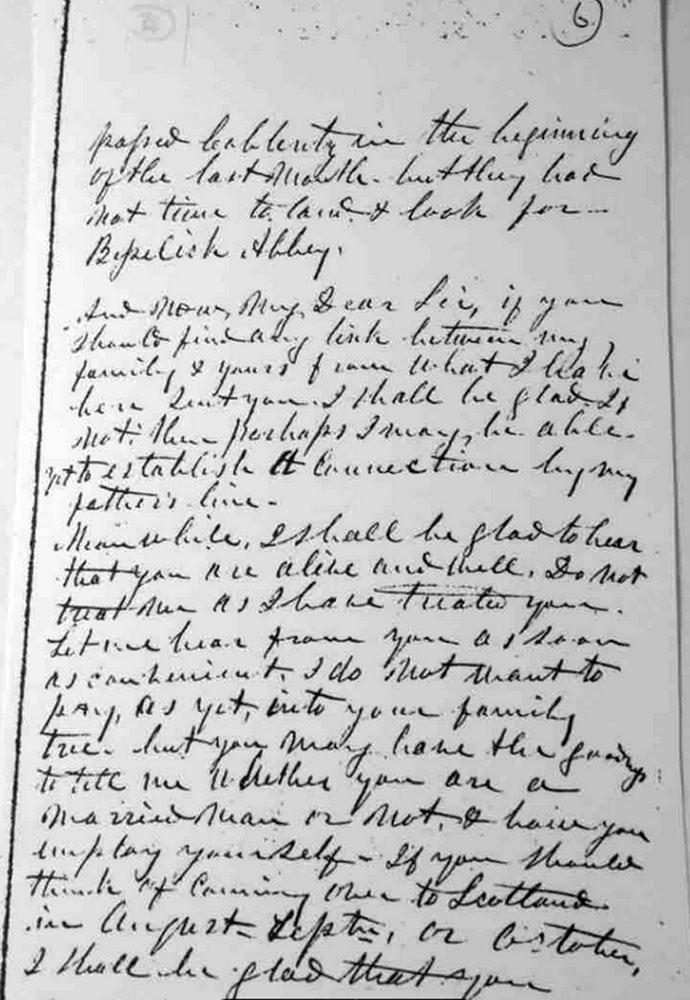 6
passed Coblentz in the beginning
of the last Month. but they had
not time to land & look for
Abbey.
And now, My Dear Sir, if you
should find any link between my
family & yours from what I have
here sent you. I shall be glad. If
not, then perhaps I may, be able
yet to establish a connection by my
father's line.
Meanwhile, I shall be glad to hear
that you are alive and well. Do not
treat me as I have treated you.
Let me hear from you as soon
as convenient. I do not want to
pry, as yet, into your family
tree. but you may have the goodness
to tell me whether you are a
married man or not, & how you
employ yourself - If you should
think of coming over to Scotland
in August - Septr, or October,
I shall be glad that you